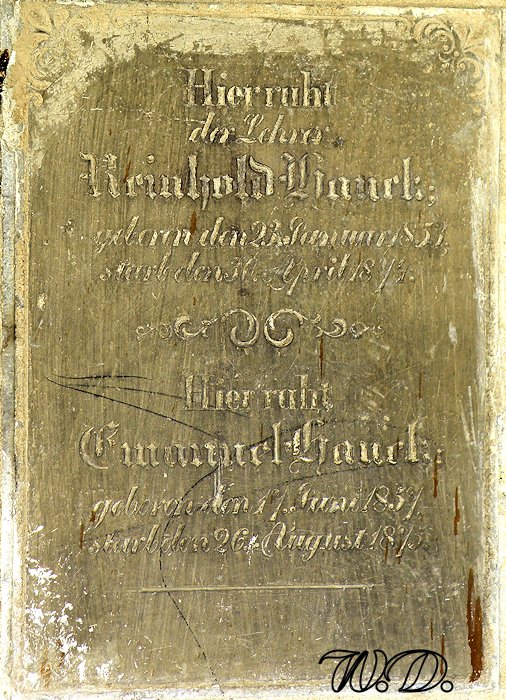 Hier ruht
der Lehrer
Reinhold Hauck,
geboren den 23. Januar 1853,
starb den 30. April 1874.
Hier ruht
Emanuel Hauck,
geboren den 17. Juni 1857,
starb den 26. August 1875.
W. D.